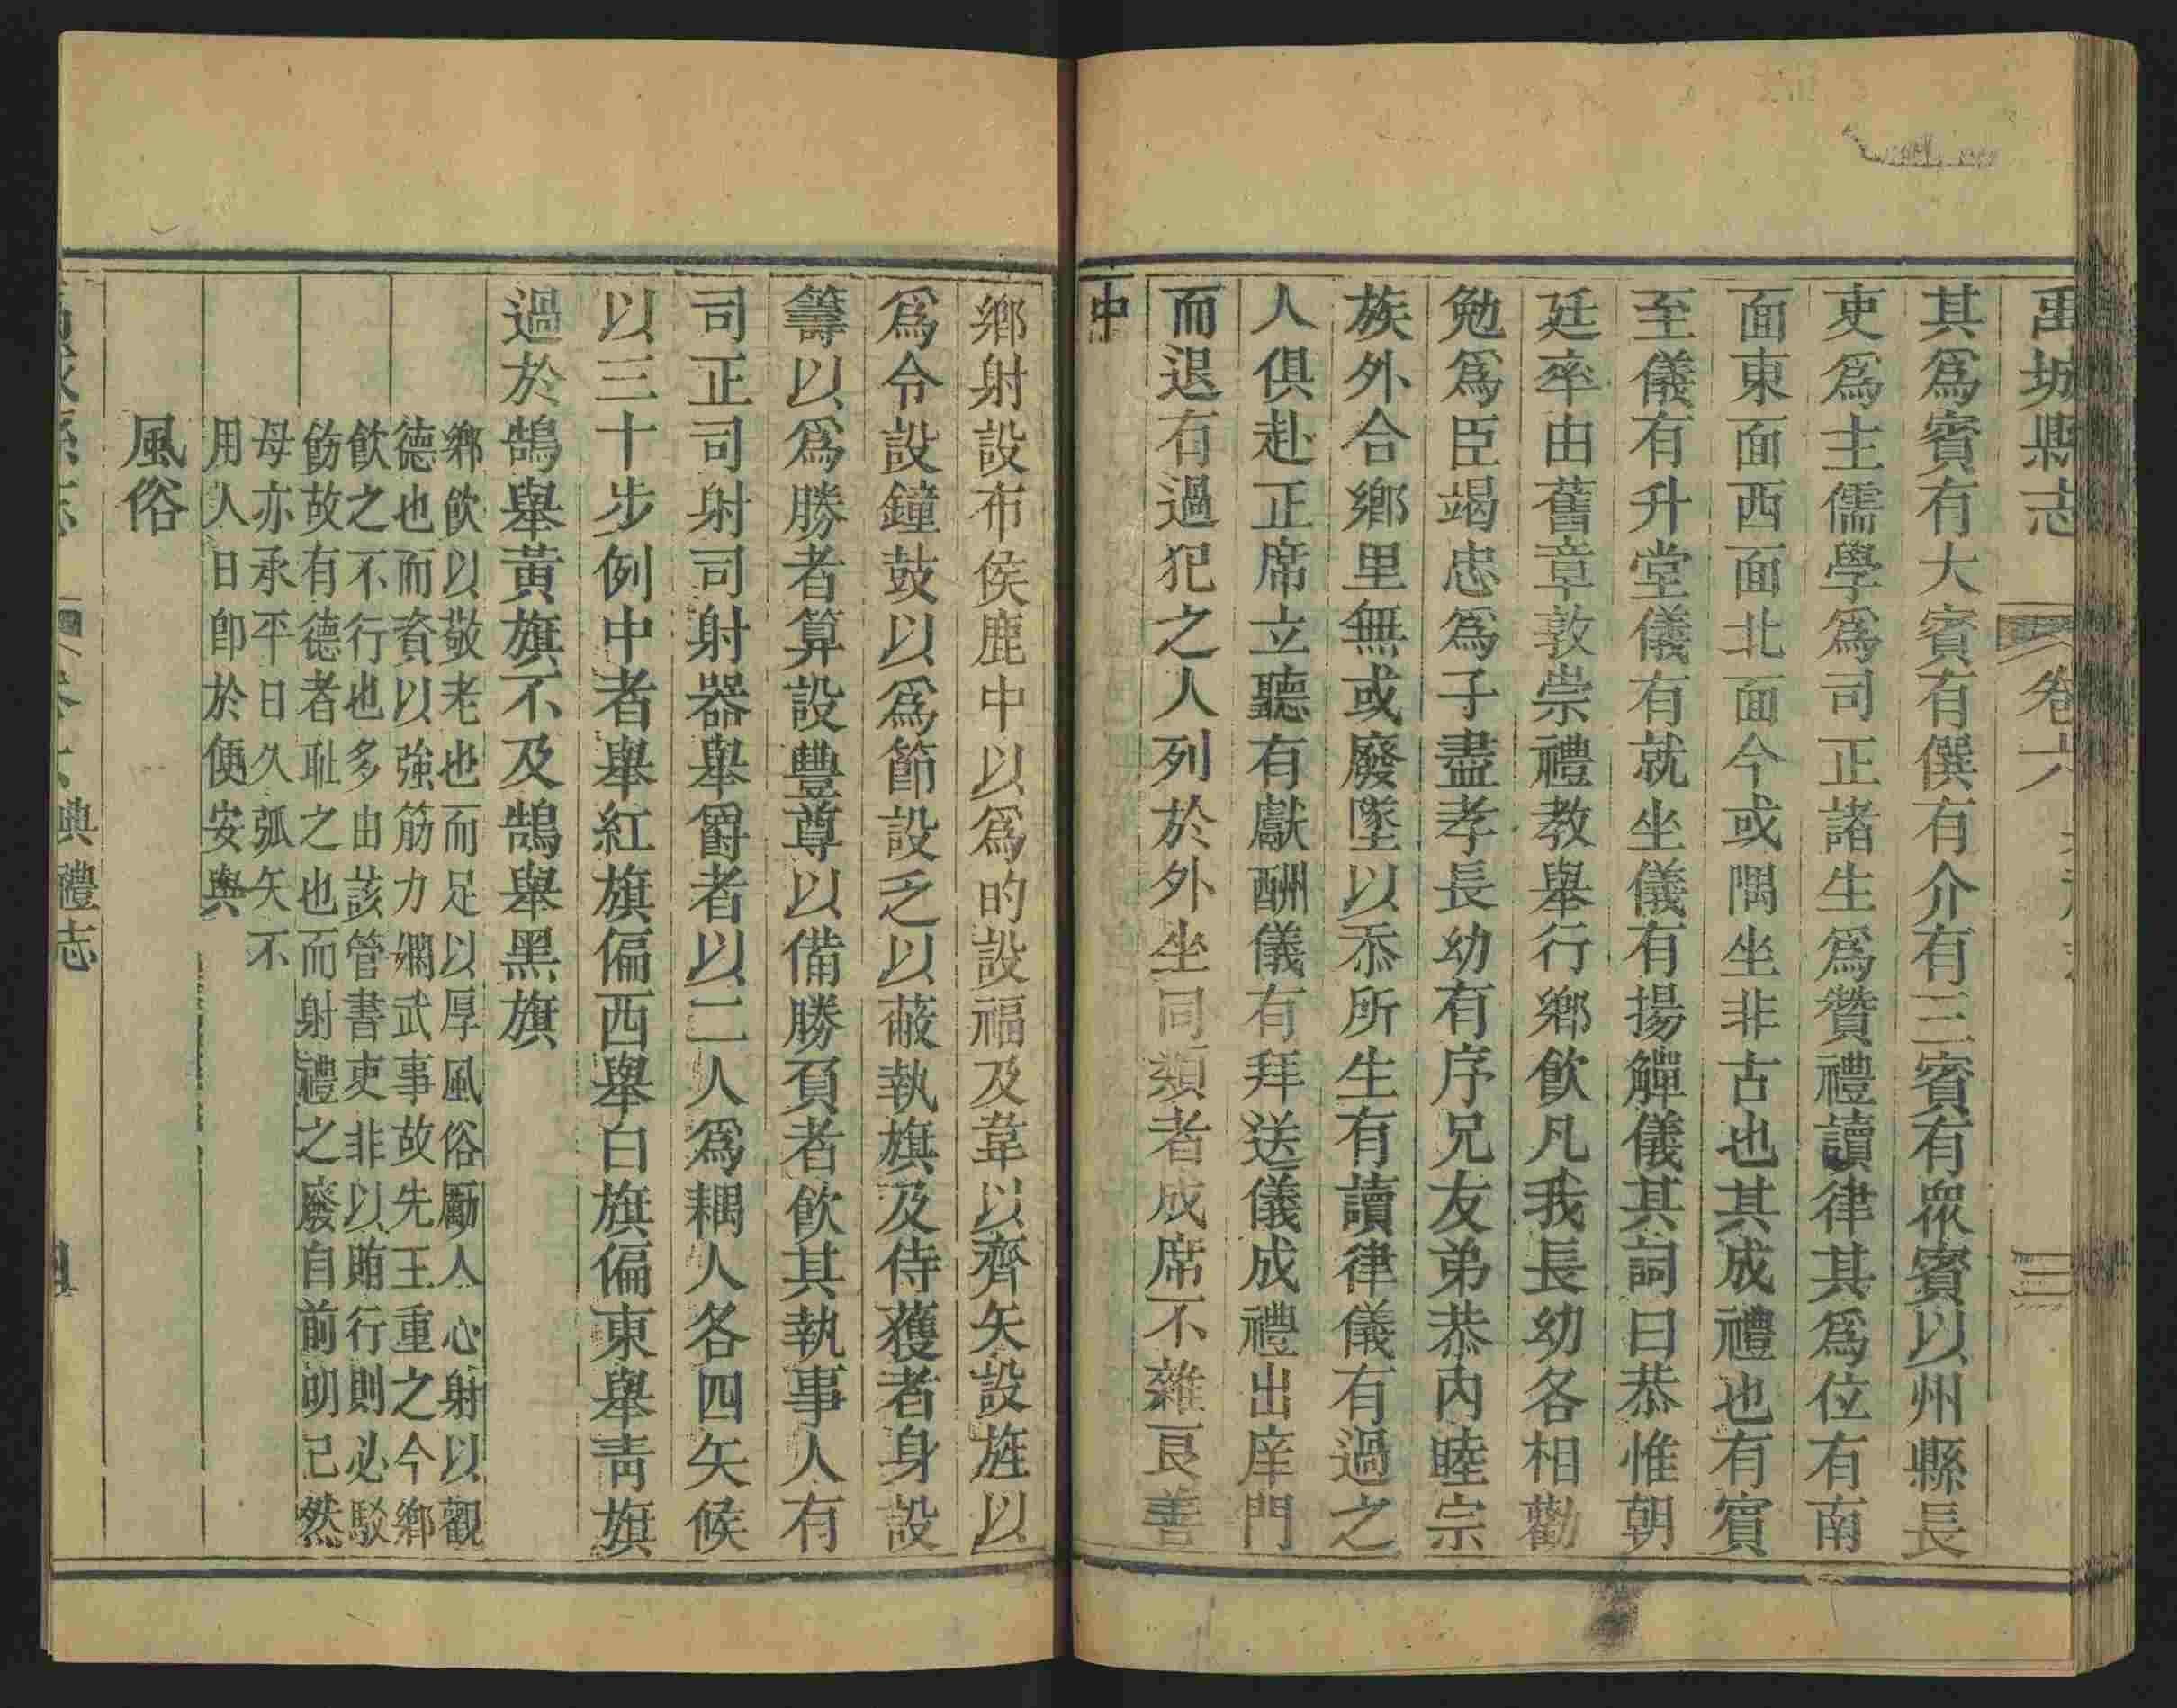 禹城縣志 卷六 三
其爲賓有大賓有僎有介有三賓有衆賓以州縣長
吏爲主儒學爲司正諸生爲贊禮讀律其爲位有南
面東面西面北面今或隅坐非古也其成禮也有賓
至儀有升堂儀有就坐儀有揚觶儀其詞曰恭惟朝
廷率由舊章敦崇禮教舉行鄉飲凡我長幼各相勸
勉爲臣竭忠爲子盡孝長幼有序兄友弟恭內睦宗
族外合鄉里無或廢墜以忝所生有讀律儀有過之
人俱赴正席立聽有獻酬儀有拜送儀成禮出庠門
而退有過犯之人列於外坐同類者成席不雜良善
中
鄉射設布侯鹿中以爲的設福及韋以齊矢設旌以
爲令設鐘鼓以爲節設乏以蔽執旗及侍獲者身設
籌以爲勝者算設豐尊以備勝負者飲其執事人有
司正司射司射器舉爵者以二人爲耦人各四矢候
以三十步例中者舉紅旗偏西舉白旗偏東舉靑旗
過於鵠舉黃旗不及鵠舉黑旗
鄉飲以敬老也而足以厚風俗勵人心射以觀
德也而資以強筋力嫻武事故先王重之今鄉
飲之不行也多由該管書吏非以賄行則必駁
飭故有德者恥之也而射禮之廢自前明已然
毋亦承平日久弧矢不
用人日卽於便安與
風俗
典禮志